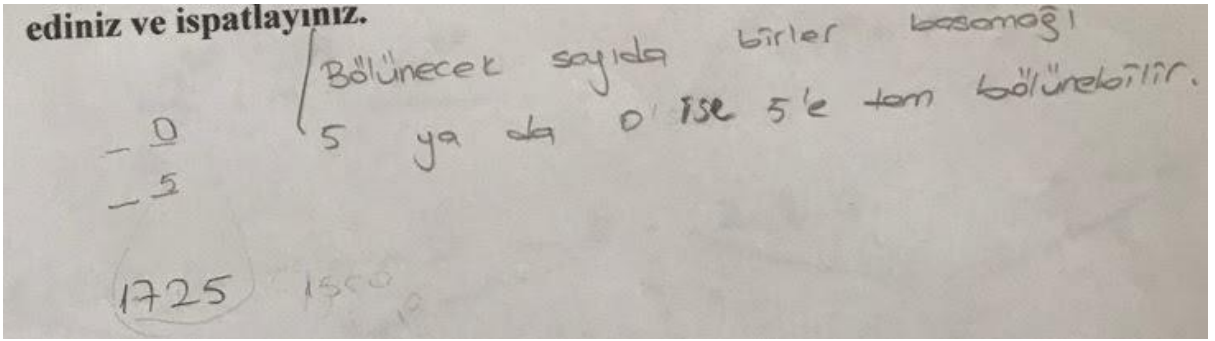 ediniz ve ispatlayınız.
Bölünecek sayıda birler basamağı
5 ya da 0 ise 5'e tam bölünebilir.
_ 0
_ 5
1725